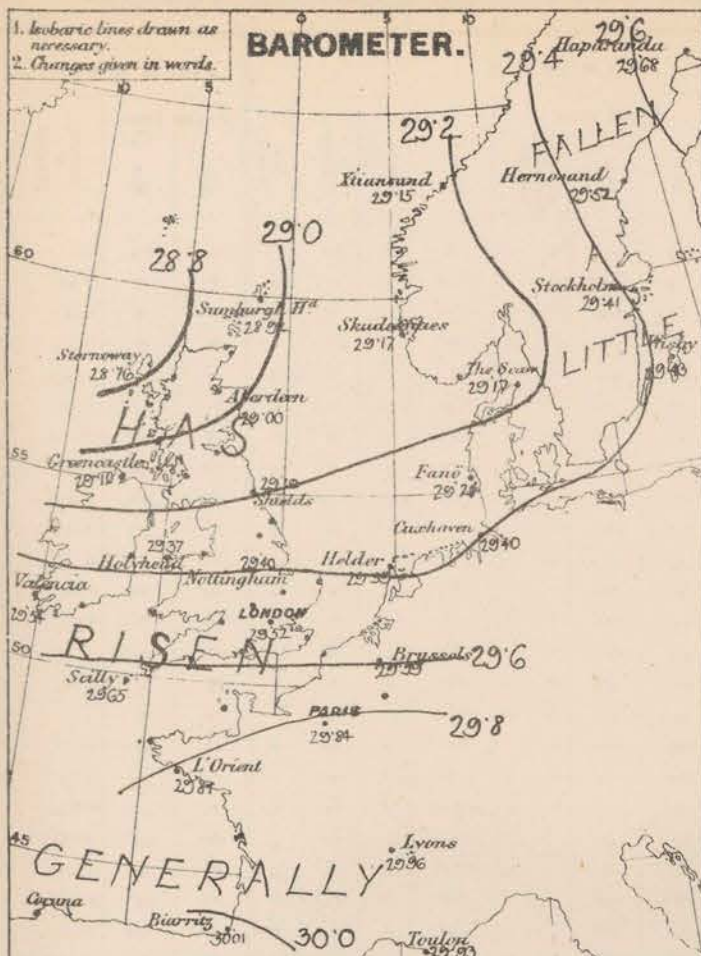 1. Isobaric lines drawn as
necessary.
2. Changes given in words.
BAROMETER.
29.6
Haparanda
29.68
29.4
29.2
FALLEN
10
5
0
5
10
Xtiansund
29.15
Hernosand
29.52
29.0
28.8
60
A
Stockholm
29.41
Sumburgh Hd
Skudesnaes
29.17
LITTLE
Wisby
29.43
Stornoway
28.76
The Scaw
29.17
Aberdeen
29.00
HAS
55
Greencastle
Fanö
Shields
Cuxhaven
29.40
29.37
Holyhead
29.40
Nottingham
Helder
Valencia
LONDON
29.52
RISEN
50
Brussels
29.6
Scilly
29.65
PARIS
29.84
29.8
L'Orient
45
Lyons
29.96
GENERALLY
Coruna
Biarritz
30.01
30.0
Toulon
29.93